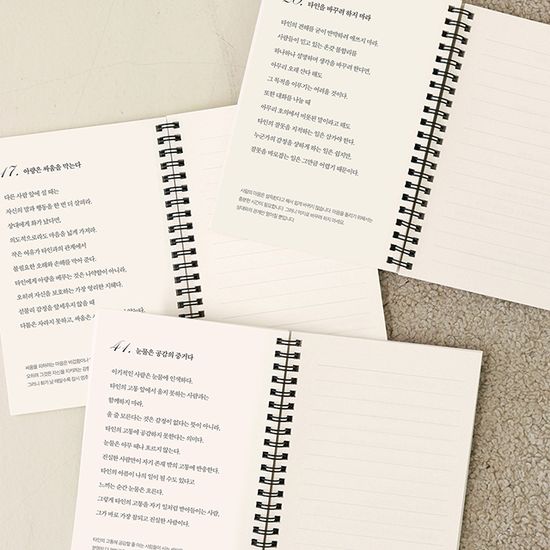 타인을 바꾸려 하지 마라
타인의 견해를 굳이 반박하려 애쓰지 마라.
사람들이 믿고 있는 온갖 불합리를
하나하나 설명하며 생각을 바꾸려 한다면,
아무리 오래 산다 해도
그 목적을 이루기는 어려울 것이다.
또한 대화를 나눌 때
아무리 호의에서 비롯된 말이라고 해도
타인의 잘못을 지적하는 일은 삼가야 한다.
누군가의 감정을 상하게 하는 일은 쉽지만,
잘못을 바로잡는 일은 그만큼 어렵기 때문이다.
17. 아량은 싸움을 막는다
다른 사람 앞에 설 때는
자신의 말과 행동을 한 번 더 살피라.
상대에게 화가 났다면,
의도적으로라도 마음을 넓게 가져라.
작은 여유가 타인과의 관계에서
불필요한 오해와 손해를 막아 준다.
타인에게 아량을 베푸는 것은 나약함이 아니라,
오히려 자신을 보호하는 가장 영리한 지혜다.
선불리 감정을 앞세우지 않을 때
다툼은 자라지 못하고, 싸움은
41. 눈물은 공감의 증거다
이기적인 사람은 눈물에 인색하다.
타인의 고통 앞에서 울지 못하는 사람과는
함께하지 마라.
울 줄 모른다는 것은 감정이 없다는 뜻이 아니라,
타인의 고통에 공감하지 못한다는 의미다.
눈물은 아무 때나 흐르지 않는다.
진실한 사람만이 자기 존재 밖의 고통에 반응한다.
타인의 아픔이 나의 일이 될 수도 있다고
느끼는 순간 눈물은 흐른다.
그렇게 타인의 고통을 자기 일처럼 받아들이는 사람,
그가 바로 가장 믿음되고 진실한 사람이다.